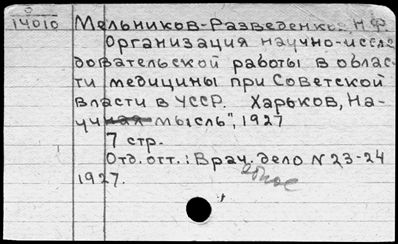 О
14010 Мельников-Разведенков, Н.Ф.
Организация научно-иссле-
довательской работы в облас-
ти медицины при Советской
власти в УССР. Харьков, На-
учная мысль", 1927
7 стр.
Отд. отт.: Врач. дело N 23-24
1927.